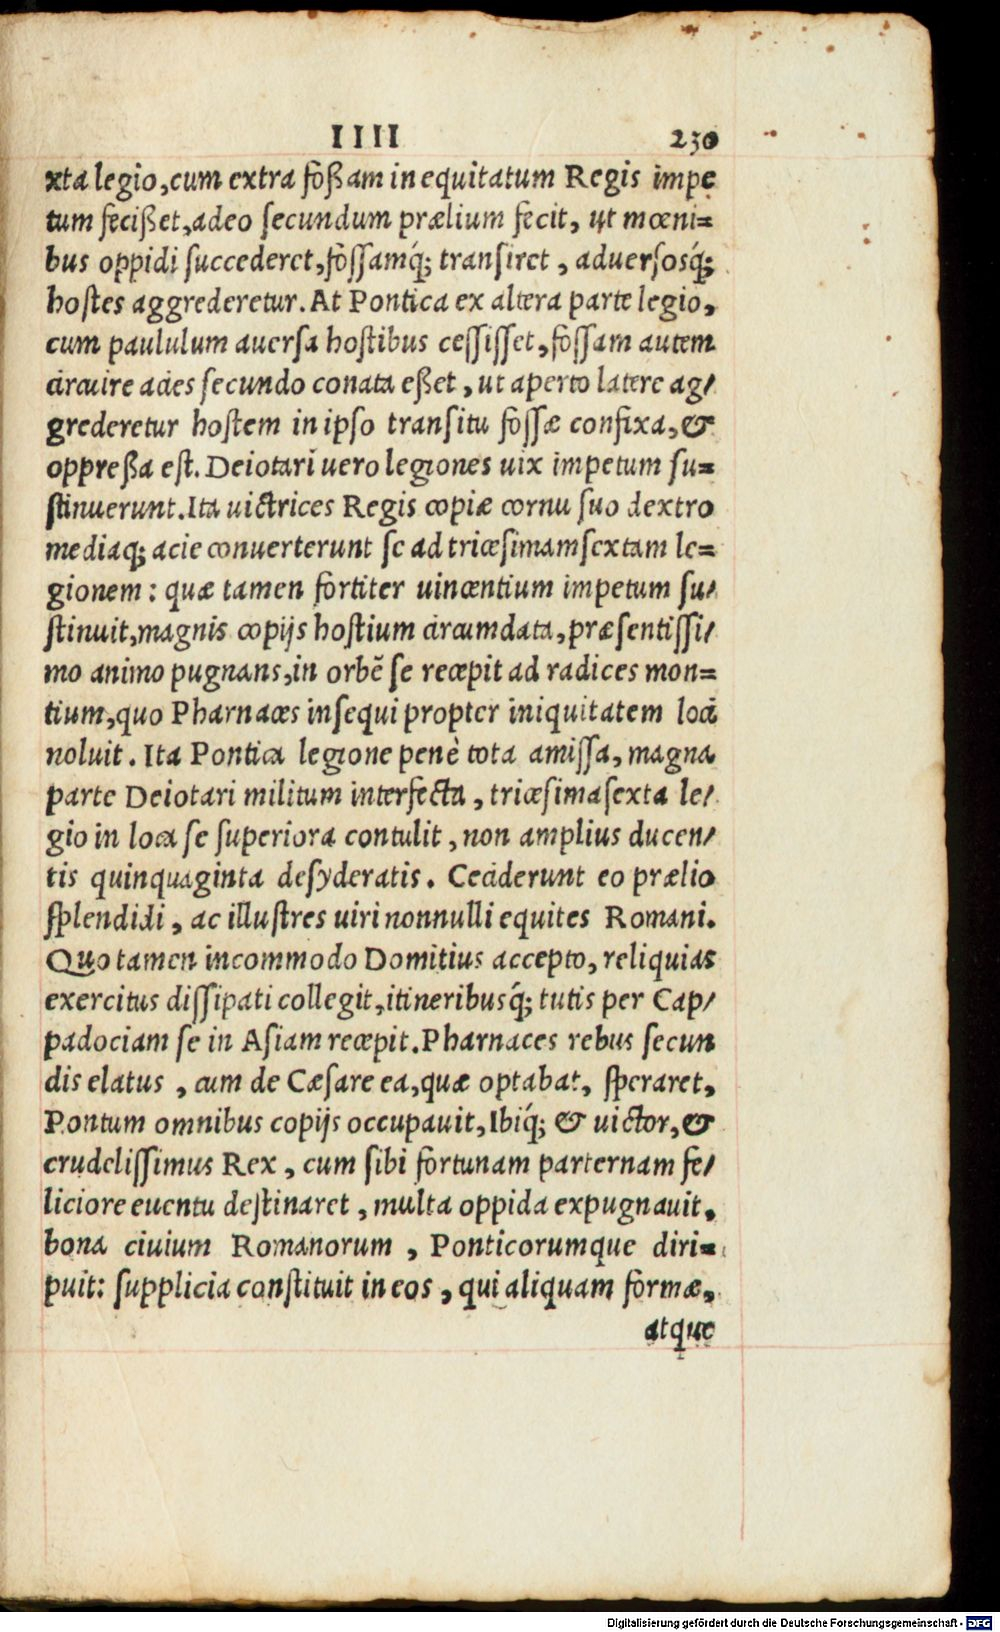 IIII 230
xta legio, cum extra foßam in equitatum Regis impe
tum fecißet, adeo ſecundum prælium fecit, ut mœni=
bus oppidi ſuccederet, foſſamq́; tranſiret, aduerſosq́;
hoſtes aggrederetur. At Pontica ex altera parte legio,
cum paululum auerſa hoſtibus ceſſiſſet, foſſam autem
circuire acies ſecundo conata eßet, ut aperto latere ag/
grederetur hoſtem in ipſo tranſitu foſſæ confixa, &
oppreßa eſt. Deiotari uero legiones uix impetum ſu=
ſtinuerunt. Ita uictrices Regis copiæ cornu ſuo dextro
mediaq; acie conuerterunt ſe ad triceſimamſextam le=
gionem: quæ tamen fortiter uincentium impetum ſu/
ſtinuit, magnis copijs hoſtium circumdata, præſentiſſi/
mo animo pugnans, in orbē ſe recepit ad radices mon=
tium, quo Pharnaces inſequi propter iniquitatem loci
noluit. Ita Pontica legione penè tota amiſſa, magna
parte Deiotari militum interfecta, triceſimaſexta le/
gio in loca ſe ſuperiora contulit, non amplius ducen/
tis quinquaginta deſyderatis. Ceciderunt eo prælio
ſplendidi, ac illuſtres uiri nonnulli equites Romani.
Quo tamen incommodo Domitius accepto, reliquias
exercitus diſſipati collegit, itineribusq́; tutis per Cap/
padociam ſe in Aſiam recepit. Pharnaces rebus ſecun
dis elatus, cum de Cæſare ea, quæ optabat, ſperaret,
Pontum omnibus copijs occupauit, Ibiq́; & uictor, &
crudeliſſimus Rex, cum ſibi fortunam parternam fe/
liciore euentu deſtinaret, multa oppida expugnauit.
bona ciuium Romanorum, Ponticorumque diri=
puit: ſupplicia conſtituit in eos, qui aliquam formæ,
atque
Digitalisierung gefördert durch die Deutsche Forschungsgemeinschaft - DFG